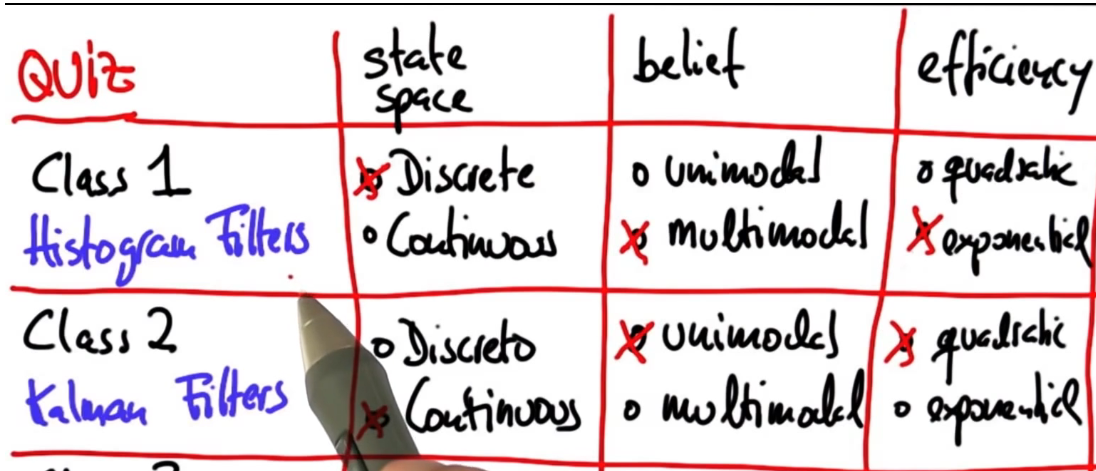 QUiz
state
space
belief
efficiency
Class 1
Histogram Filters
Discrete
Continuous
unimodal
multimodal
quadratic
exponential
Class 2
Kalman Filters
Discrete
Continuous
unimodal
multimodal
quadratic
exponential